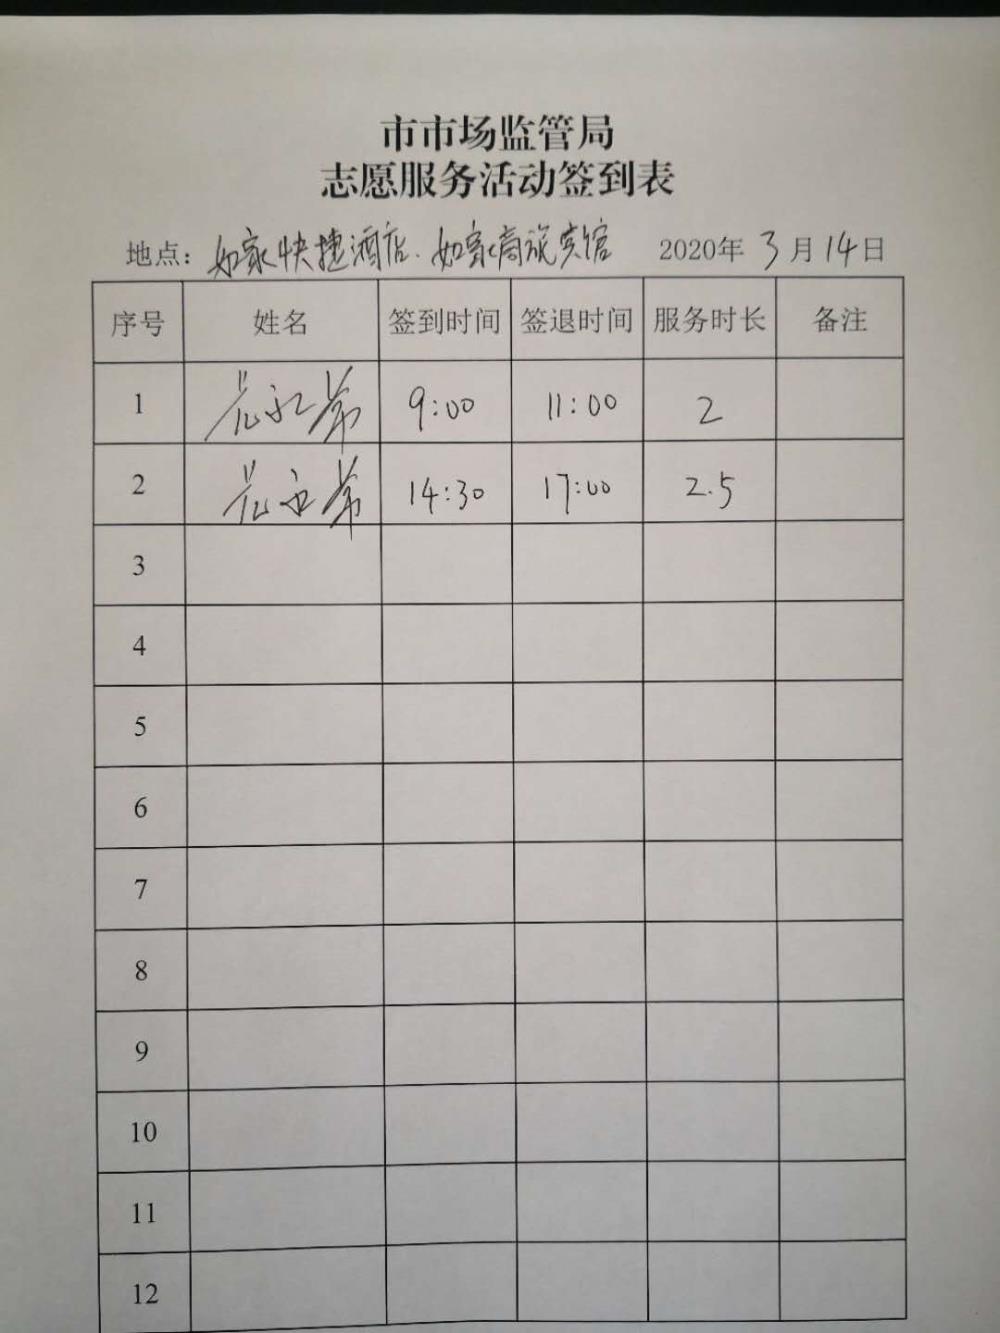 市市场监管局
志愿服务活动签到表
地点：如家快捷酒店、如家商旅宾馆 2020年3月14日
序号 姓名 签到时间 签退时间 服务时长 备注
1 9:00 11:00 2
2 14:30 17:00 2.5
3
4
5
6
7
8
9
10
11
12